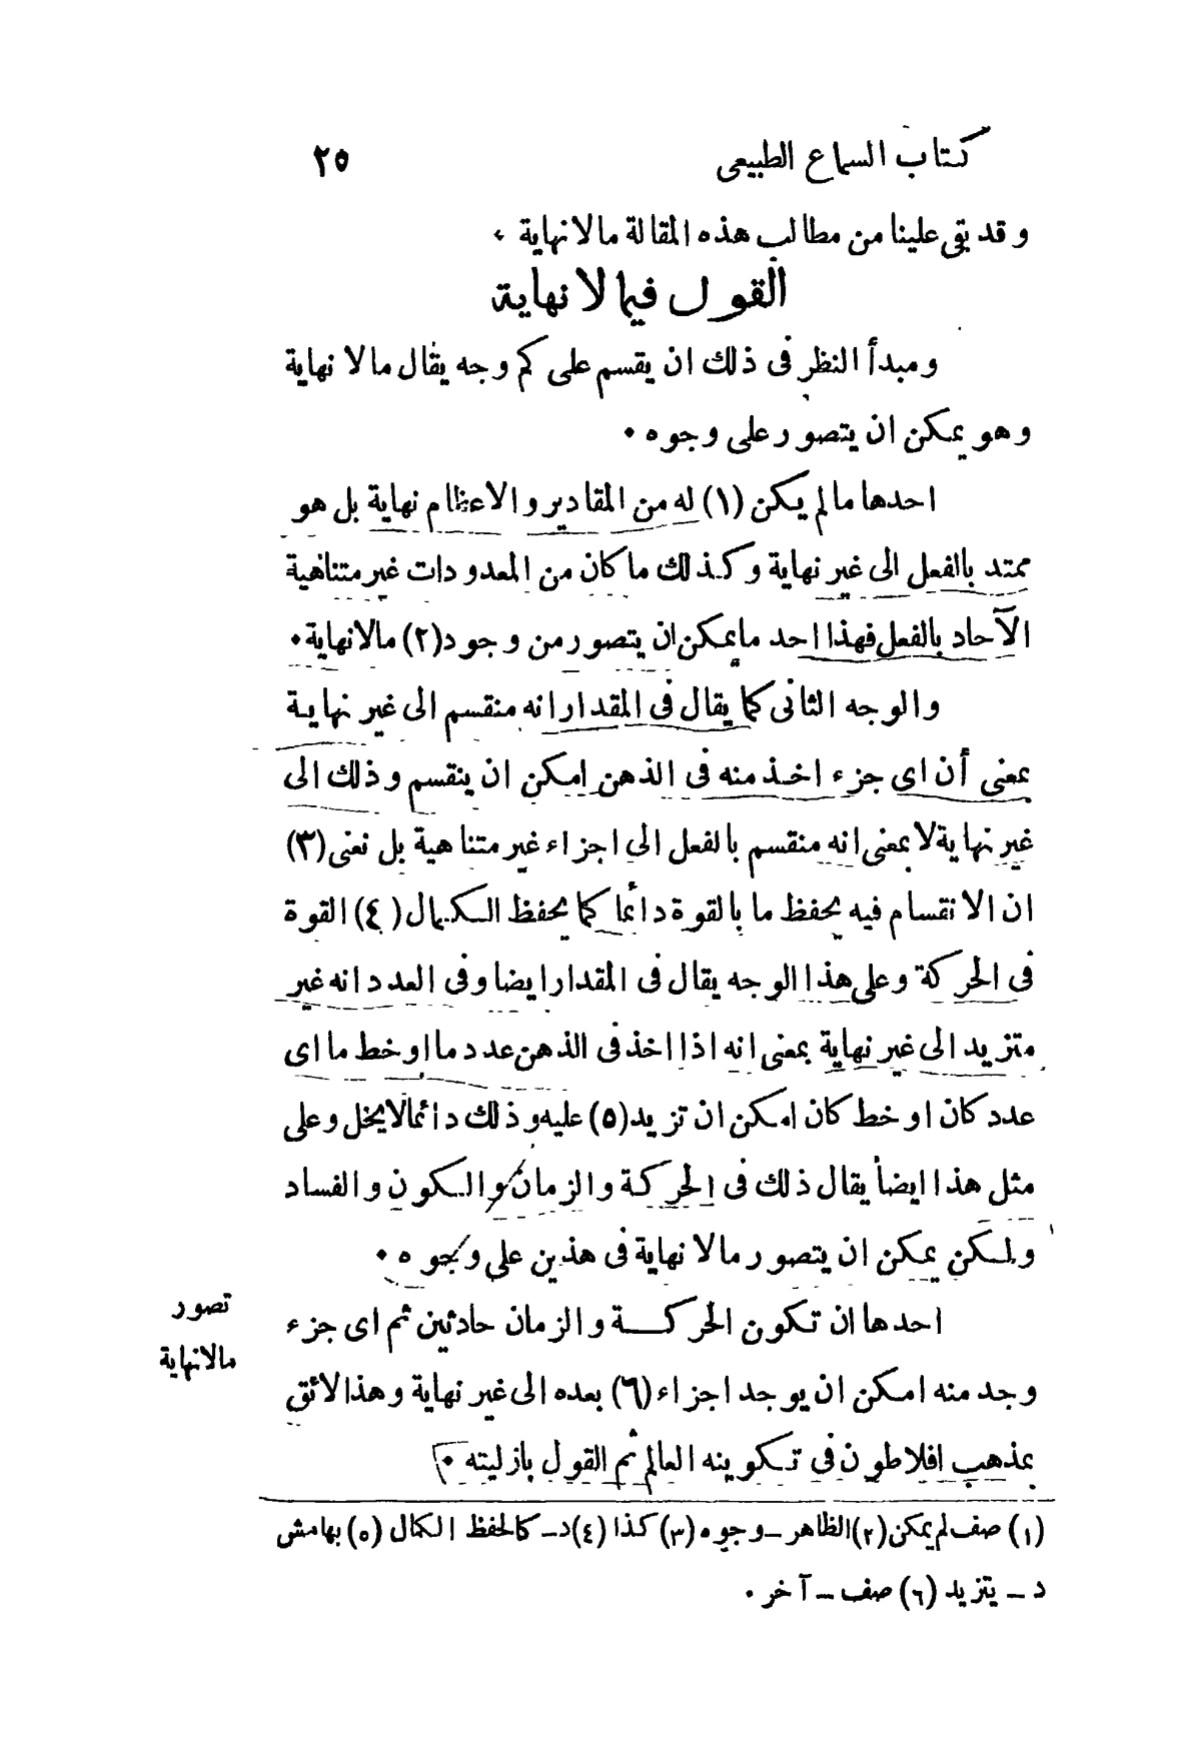 كتاب السماع الطبيعى ٢٥
وقد بقى علينا من مطالب هذه المقالة مالا نهاية ٠
القول فيما لا نهاية
ومبدأ النظر فى ذلك ان يقسم على كم وجه يقال مالا نهاية
وهو يمكن ان يتصور على وجوه ٠
احدها مالم يكن (١) له من المقادير والاعظام نهاية بل هو
ممتد بالفعل الى غير نهاية وكذلك ما كان من المعدودات غير متناهية
الآحاد بالفعل فهذا احد ما يمكن ان يتصور من وجود (٢) مالا نهاية ٠
والوجه الثانى كما يقال فى المقدار انه منقسم الى غير نهاية
بمعنى أن اى جزء اخذ منه فى الذهن امكن ان ينقسم وذلك الى
غير نهاية لا بمعنى انه منقسم بالفعل الى اجزاء غير متناهية بل نعنى (٣)
ان الانقسام فيه يحفظ ما بالقوة دائما كما يحفظ الكمال (٤) القوة
فى الحركة وعلى هذا الوجه يقال فى المقدار ايضا وفى العدد انه غير
متزيد الى غير نهاية بمعنى انه اذا اخذ فى الذهن عدد ما او خط ما اى
عدد كان او خط كان امكن ان تزيد (٥) عليه وذلك دائما لا يخل وعلى
مثل هذا ايضا يقال ذلك فى الحركة والزمان والكون والفساد
ولكن يمكن ان يتصور مالا نهاية فى هذين على وجوه ٠
احدها ان تكون الحركة والزمان حادثين ثم اى جزء
تصور
مالا نهاية
وجد منه امكن ان يوجد اجزاء (٦) بعده الى غير نهاية وهذا لائق
بمذهب افلاطون فى تكوينه العالم ثم القول بازليته ٠
(١) صف لم يمكن (٢) الظاهر ــ وجوه (٣) كذا (٤) د ــ كالحفظ الكمال (٥) بهامش
د ــ يتزيد (٦) صف ــ آخر ٠